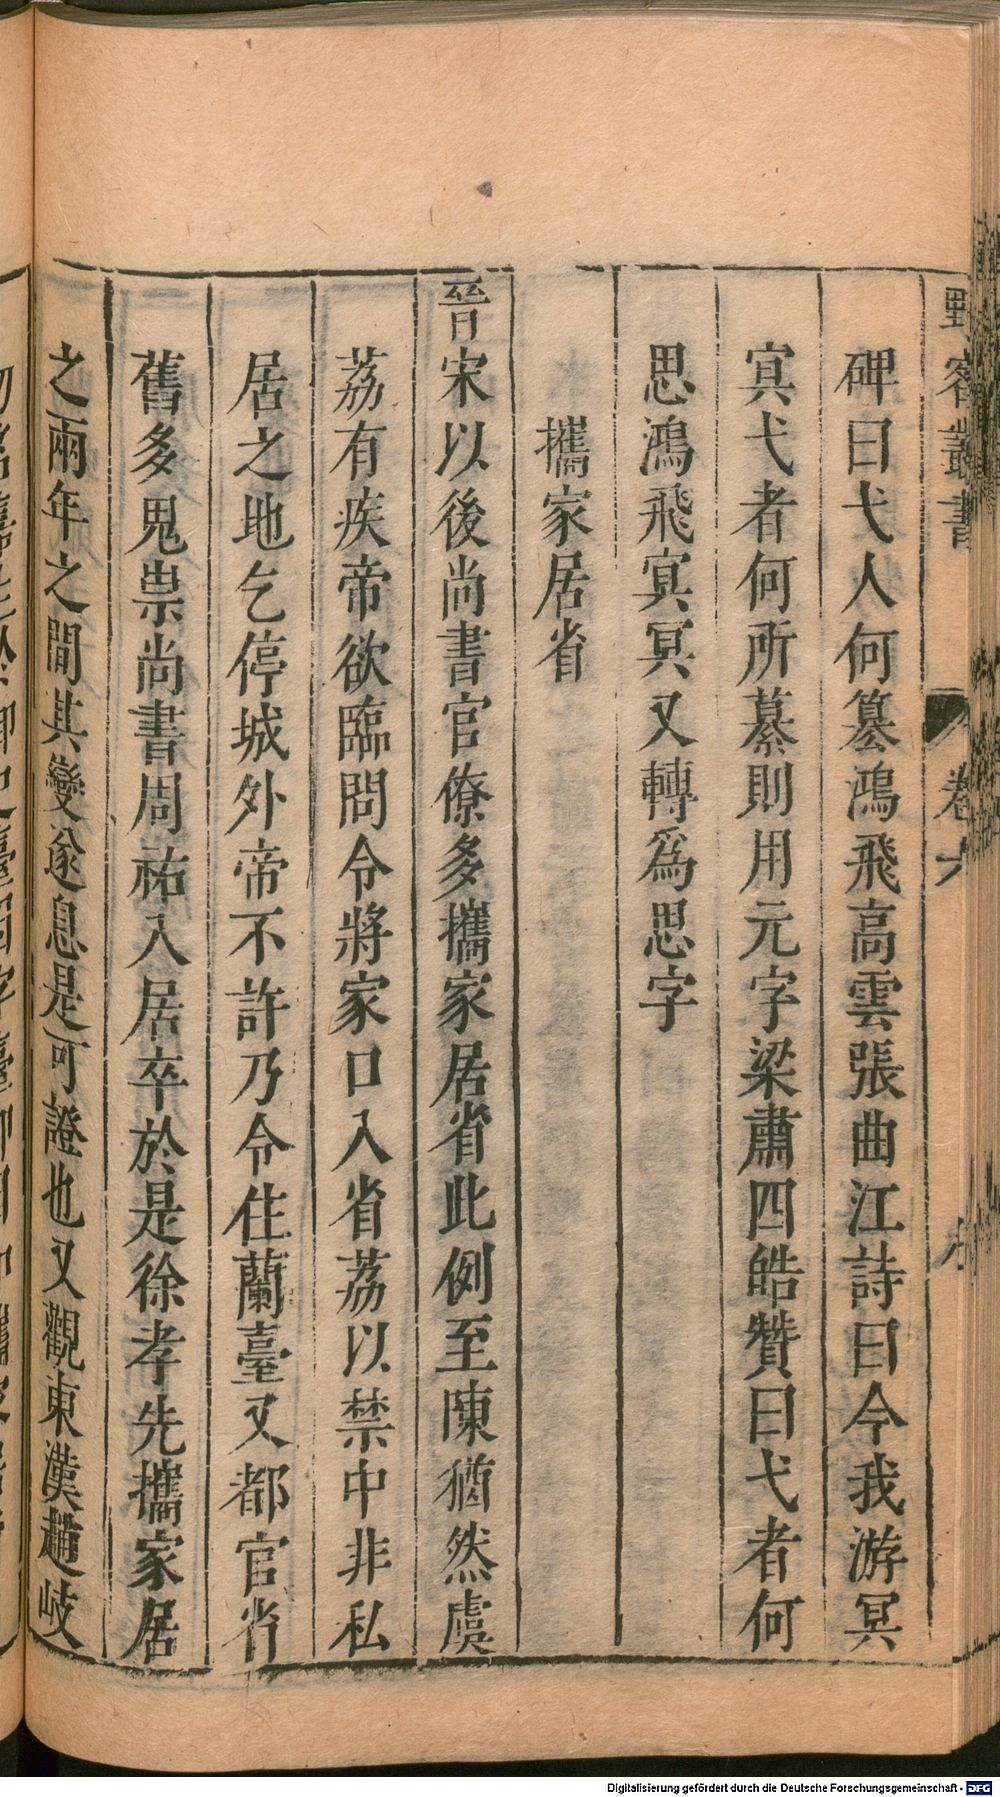 野客叢書
卷六
碑曰弋人何篡鴻飛高雲張曲江詩曰今我游冥
冥弋者何所慕則用元字梁肅四皓贊曰弋者何
思鴻飛冥冥又轉爲思字
攜家居省
晉宋以後尚書官僚多攜家居省此例至陳猶然虞
荔有疾帝欲臨問令將家口入省荔以禁中非私
居之地乞停城外帝不許乃令住蘭臺又都官省
舊多鬼祟尚書周祐入居卒於是徐孝先攜家居
之兩年之間其變遂息是可證也又觀東漢趙岐
Digitalisierung gefördert durch die Deutsche Forschungsgemeinschaft - DFG